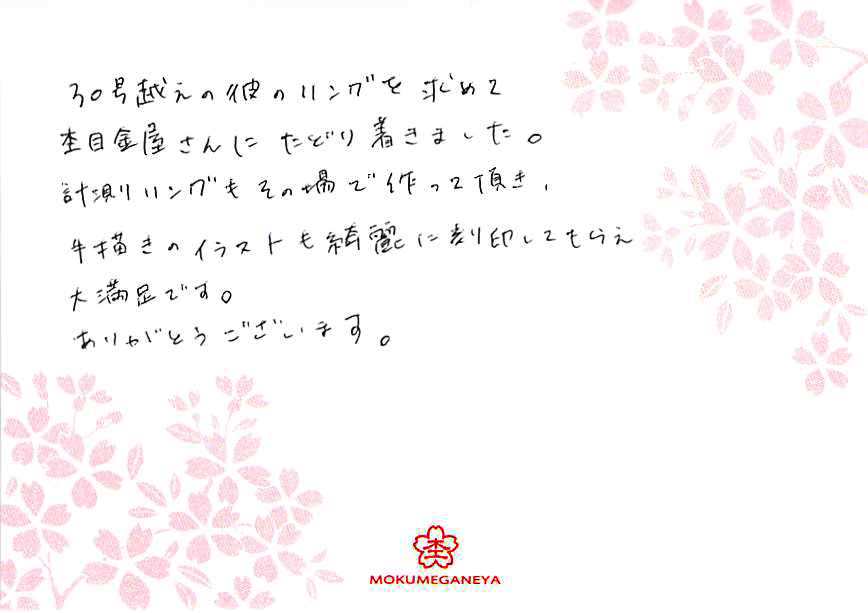 30号越えの彼のリングを求めて
杢目金屋さんにたどり着きました。
計測リングもその場で作って頂き、
手描きのイラストも綺麗に刻印してもらえ
大満足です。
ありがとうございます。
杢
MOKUMEGANEYA